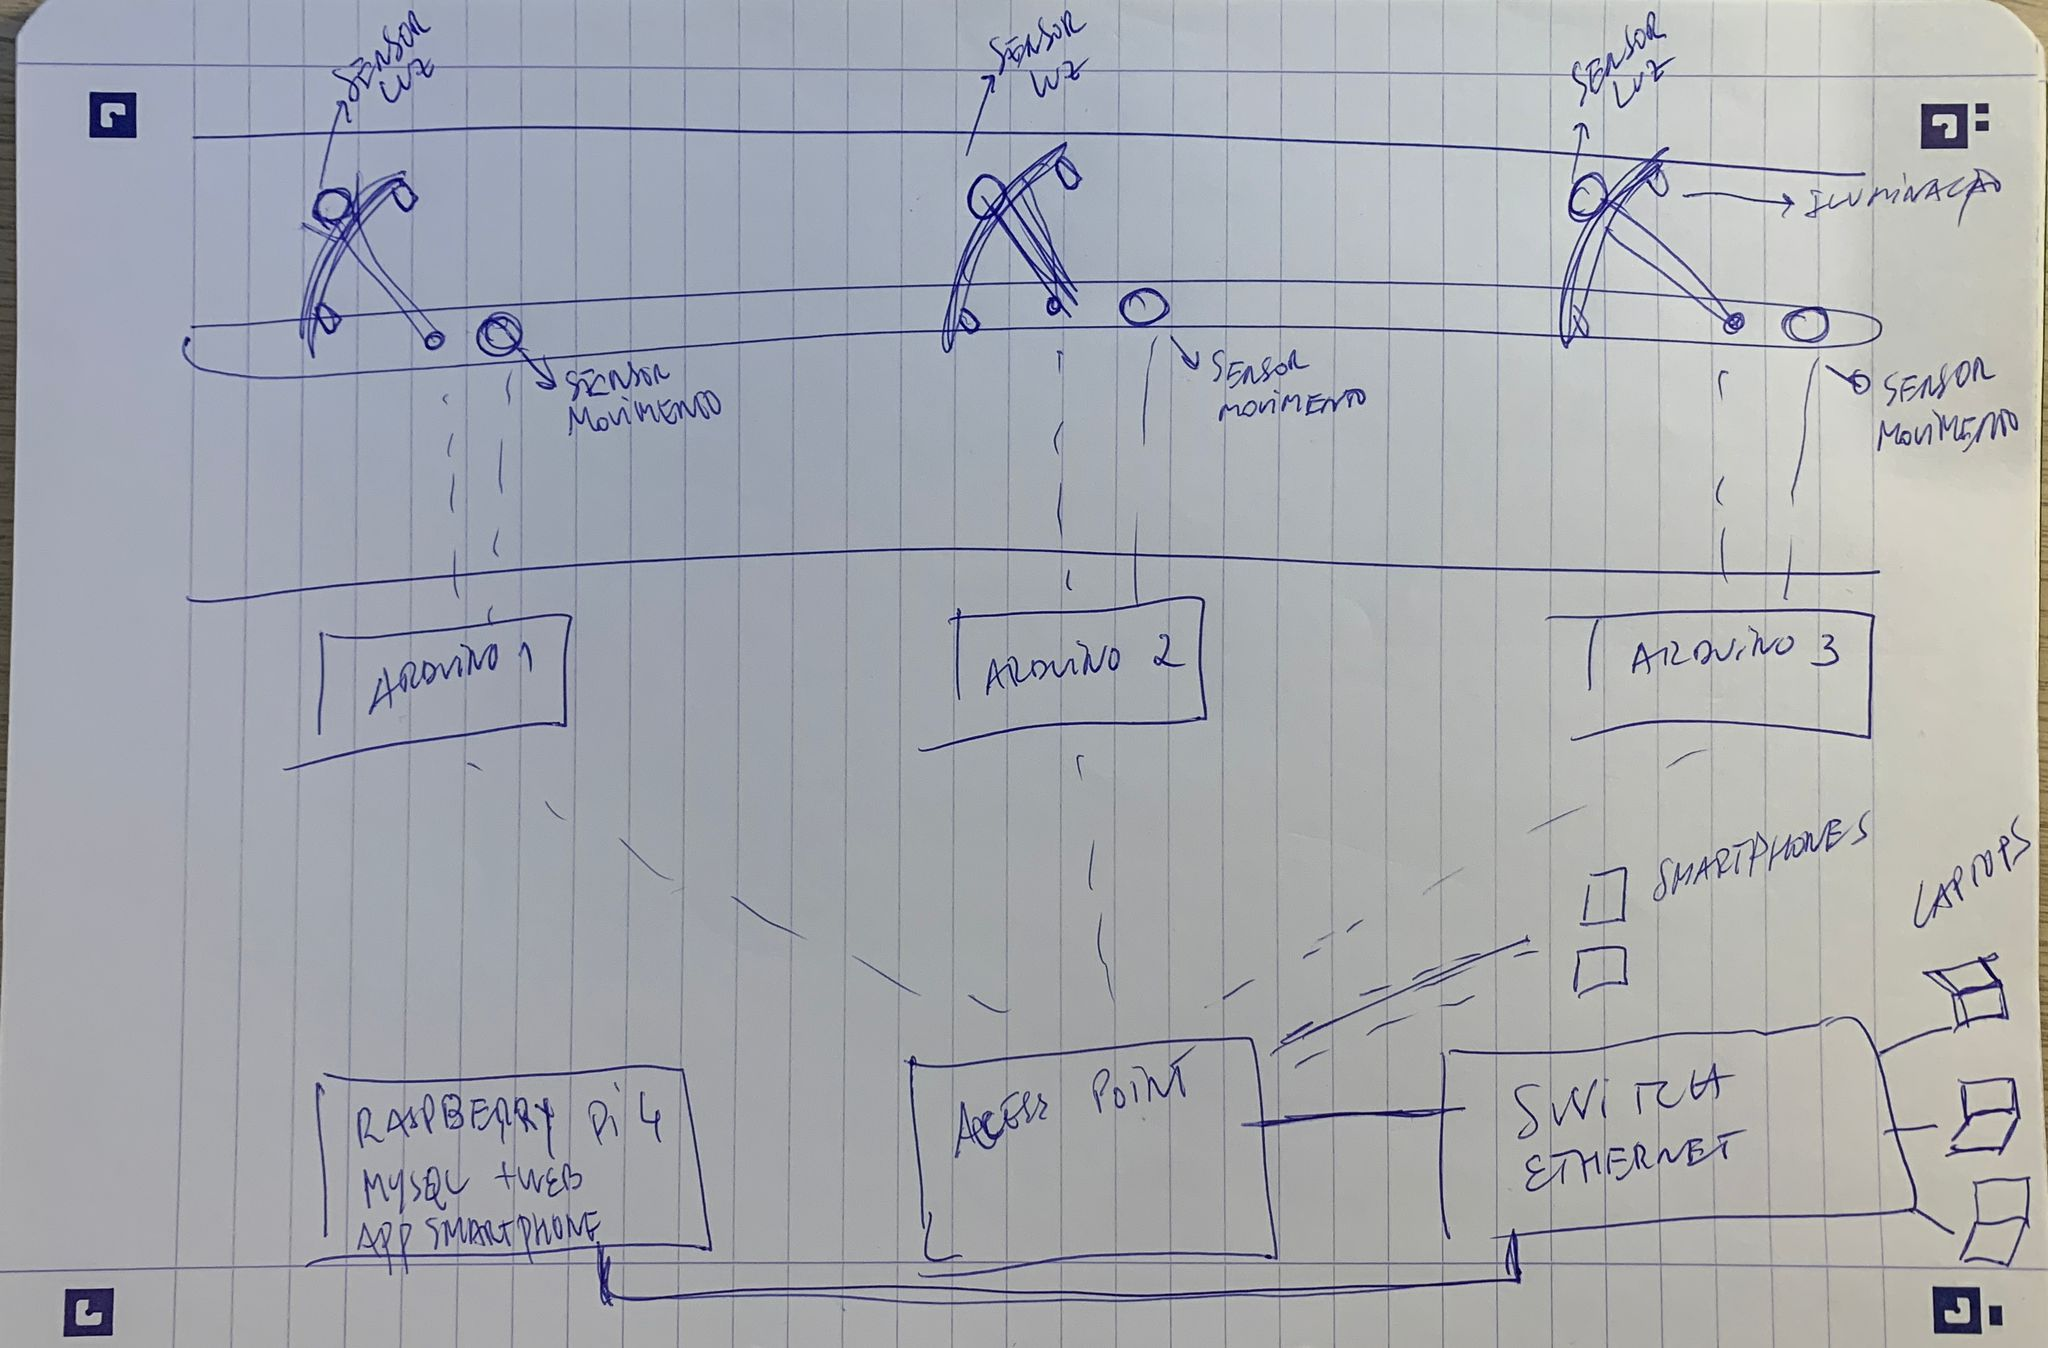 SENSOR
LUZ
SENSOR
LUZ
SENSOR
LUZ
ILUMINAÇÃO
SENSOR
MOVIMENTO
SENSOR
MOVIMENTO
SENSOR
MOVIMENTO
ARDUINO 1
ARDUINO 2
ARDUINO 3
SMARTPHONES
LAPTOPS
RASPBERRY Pi 4
MYSQL + WEB
APP SMARTPHONE
ACCESS POINT
SWITCH
ETHERNET